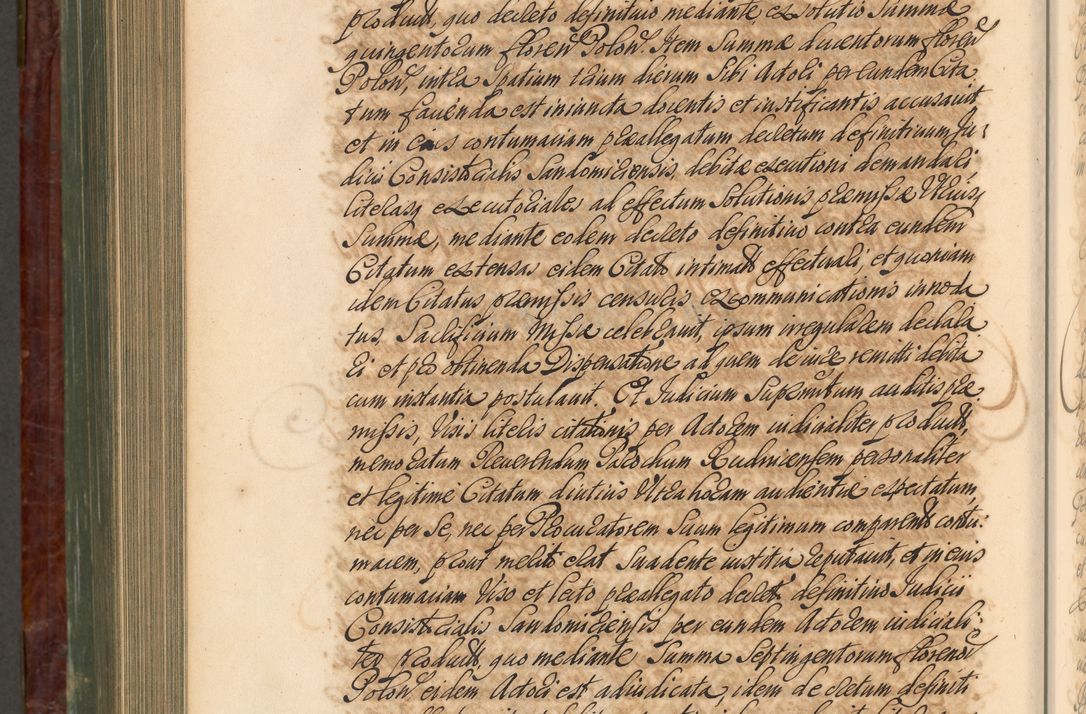 produxit, quo decreto definitivo mediante exolutio Summæ
quingentorum floren Polon. Item Summæ ducentorum floren
Polon, intra Spatium trium dierum Sibi Actori per eundem Cita
tum facienda est iniuncta docentis et iustificantis accusavit
et in eius contumaciam præallegatum decretum definitivum Iu:
dicii Consistorialis Sandomiriensis, debitæ executioni demandari
literasq executoriales ad effectum Solutionis præmissæ Utriusq
Summæ, mediante eodem decreto definitivo contra eundem
Citatum extensas eidem Citato intimato effectuali, et quoniam
idem Citatus præmissis censuris excommunicationis innoda
tus Sacrificium Missæ celebravit, ipsum irregularem declara
ri et pro obtinenda Dispensatione ad quem de iure remitti debita
cum instantia postulavit. Et Iudicium Supremitum auditis præ
missis, Visis literis citationis per Actorem iudicialiter productis,
memoratum Reverendum Parochum Rudnicensem personaliter
et legitime Citatum diutius Ultra horam audientiæ expectatum
nec per Se, nec per Procuratorem Suum legitimum comparentem contu:
macem, prout merito erat Suadente iustitia reputavit, et in eius
contumaciam Viso et lecto præallegato decreto definitivo Iudicii
Consistorialis Sandomiriensis per eundem Actorem iudiciali:
ter producto, quo mediante Summa Septingentorum florenor
Polon eidem Actori est adiudicata, idem decretum definiti